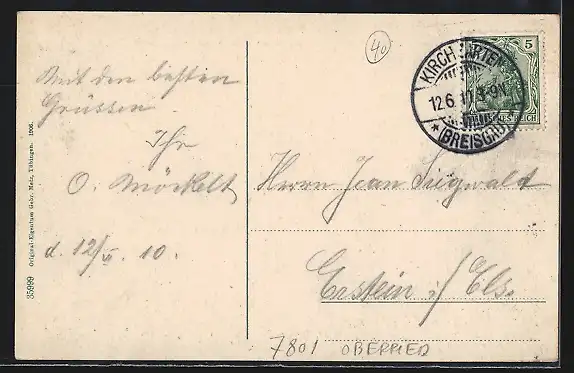 40
5
KIRCHZARTEN
12.6.10.8-9N
* (BREISGAU) *
Mit den besten
Grüssen
Ihr
O. Mörkelt
d. 12/VI. 10.
Herrn Jean Siegwald
Erstein i/ Els.
35999 Original-Eigentum Gebr. Metz, Tübingen. 1906.
7801 OBERRIED